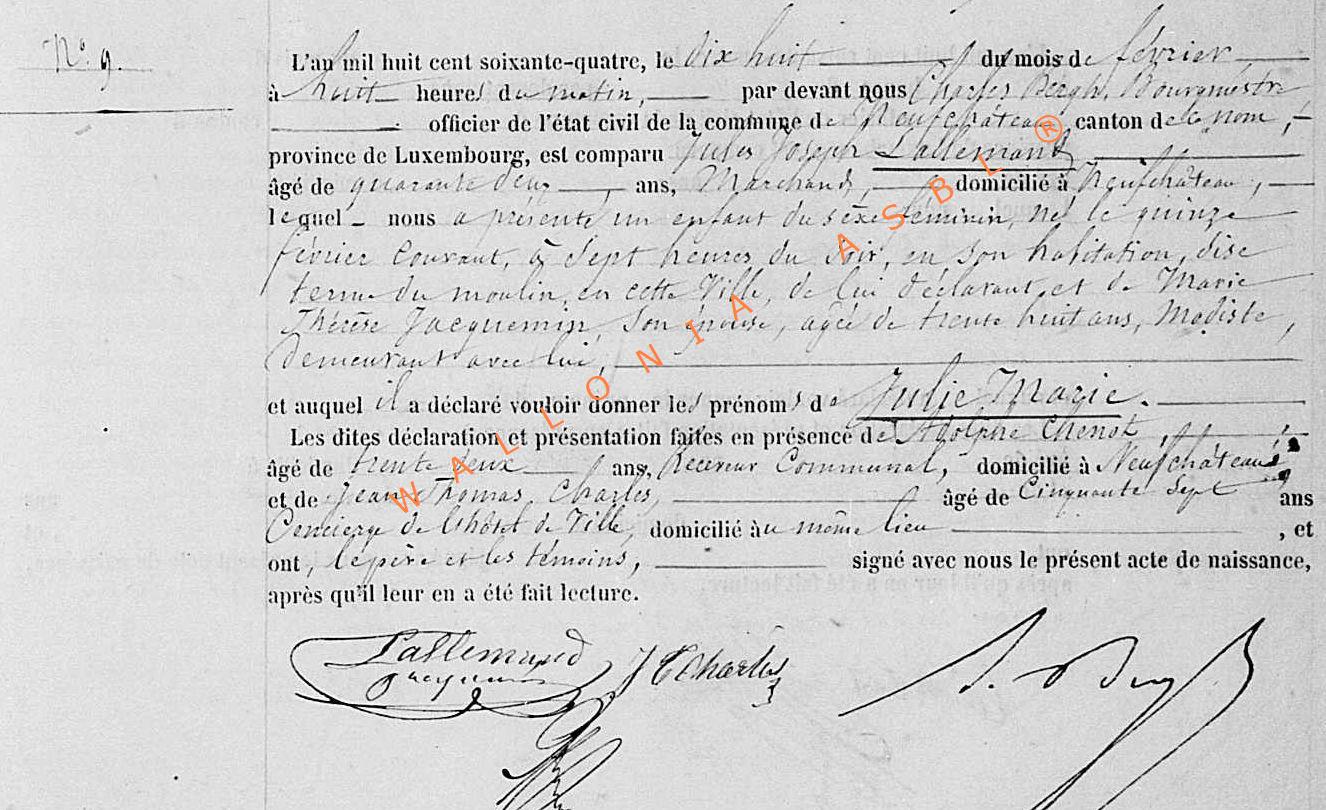 N.º 9.
L'an mil huit cent soixante-quatre, le dix huit du mois de février
à huit heures du matin, par devant nous Charles Bergh, Bourgmestre
officier de l'état civil de la commune de Neufchâteau canton de ce nom,
province de Luxembourg, est comparu Jules Joseph Lallemand
âgé de quarante deux ans, Marchand, domicilié à Neufchâteau,
lequel nous a présenté un enfant du sèxe féminin, né le quinze
février courant, à sept heures du soir, en son habitation, dise
terme du moulin, en cette Ville, de lui déclarant et de Marie
Thérèse Jacquemin, son épouse, agée de trente huit ans, Modiste,
demeurant avec lui,
et auquel il a déclaré vouloir donner les prénoms de Julie Marie.
Les dites déclaration et présentation faites en présence de Adolphe Chenot,
âgé de trente deux ans, Receveur Communal, domicilié à Neufchâteau
et de Jean Thomas Charles, âgé de Cinquante Sept ans
Concierge de l'hôtel de Ville, domicilié au même lieu, et
ont, le père et les témoins, signé avec nous le présent acte de naissance,
après qu'il leur en a été fait lecture.
Lallemand J T Charles
Jacquemin
WALLONIA ASBL ®